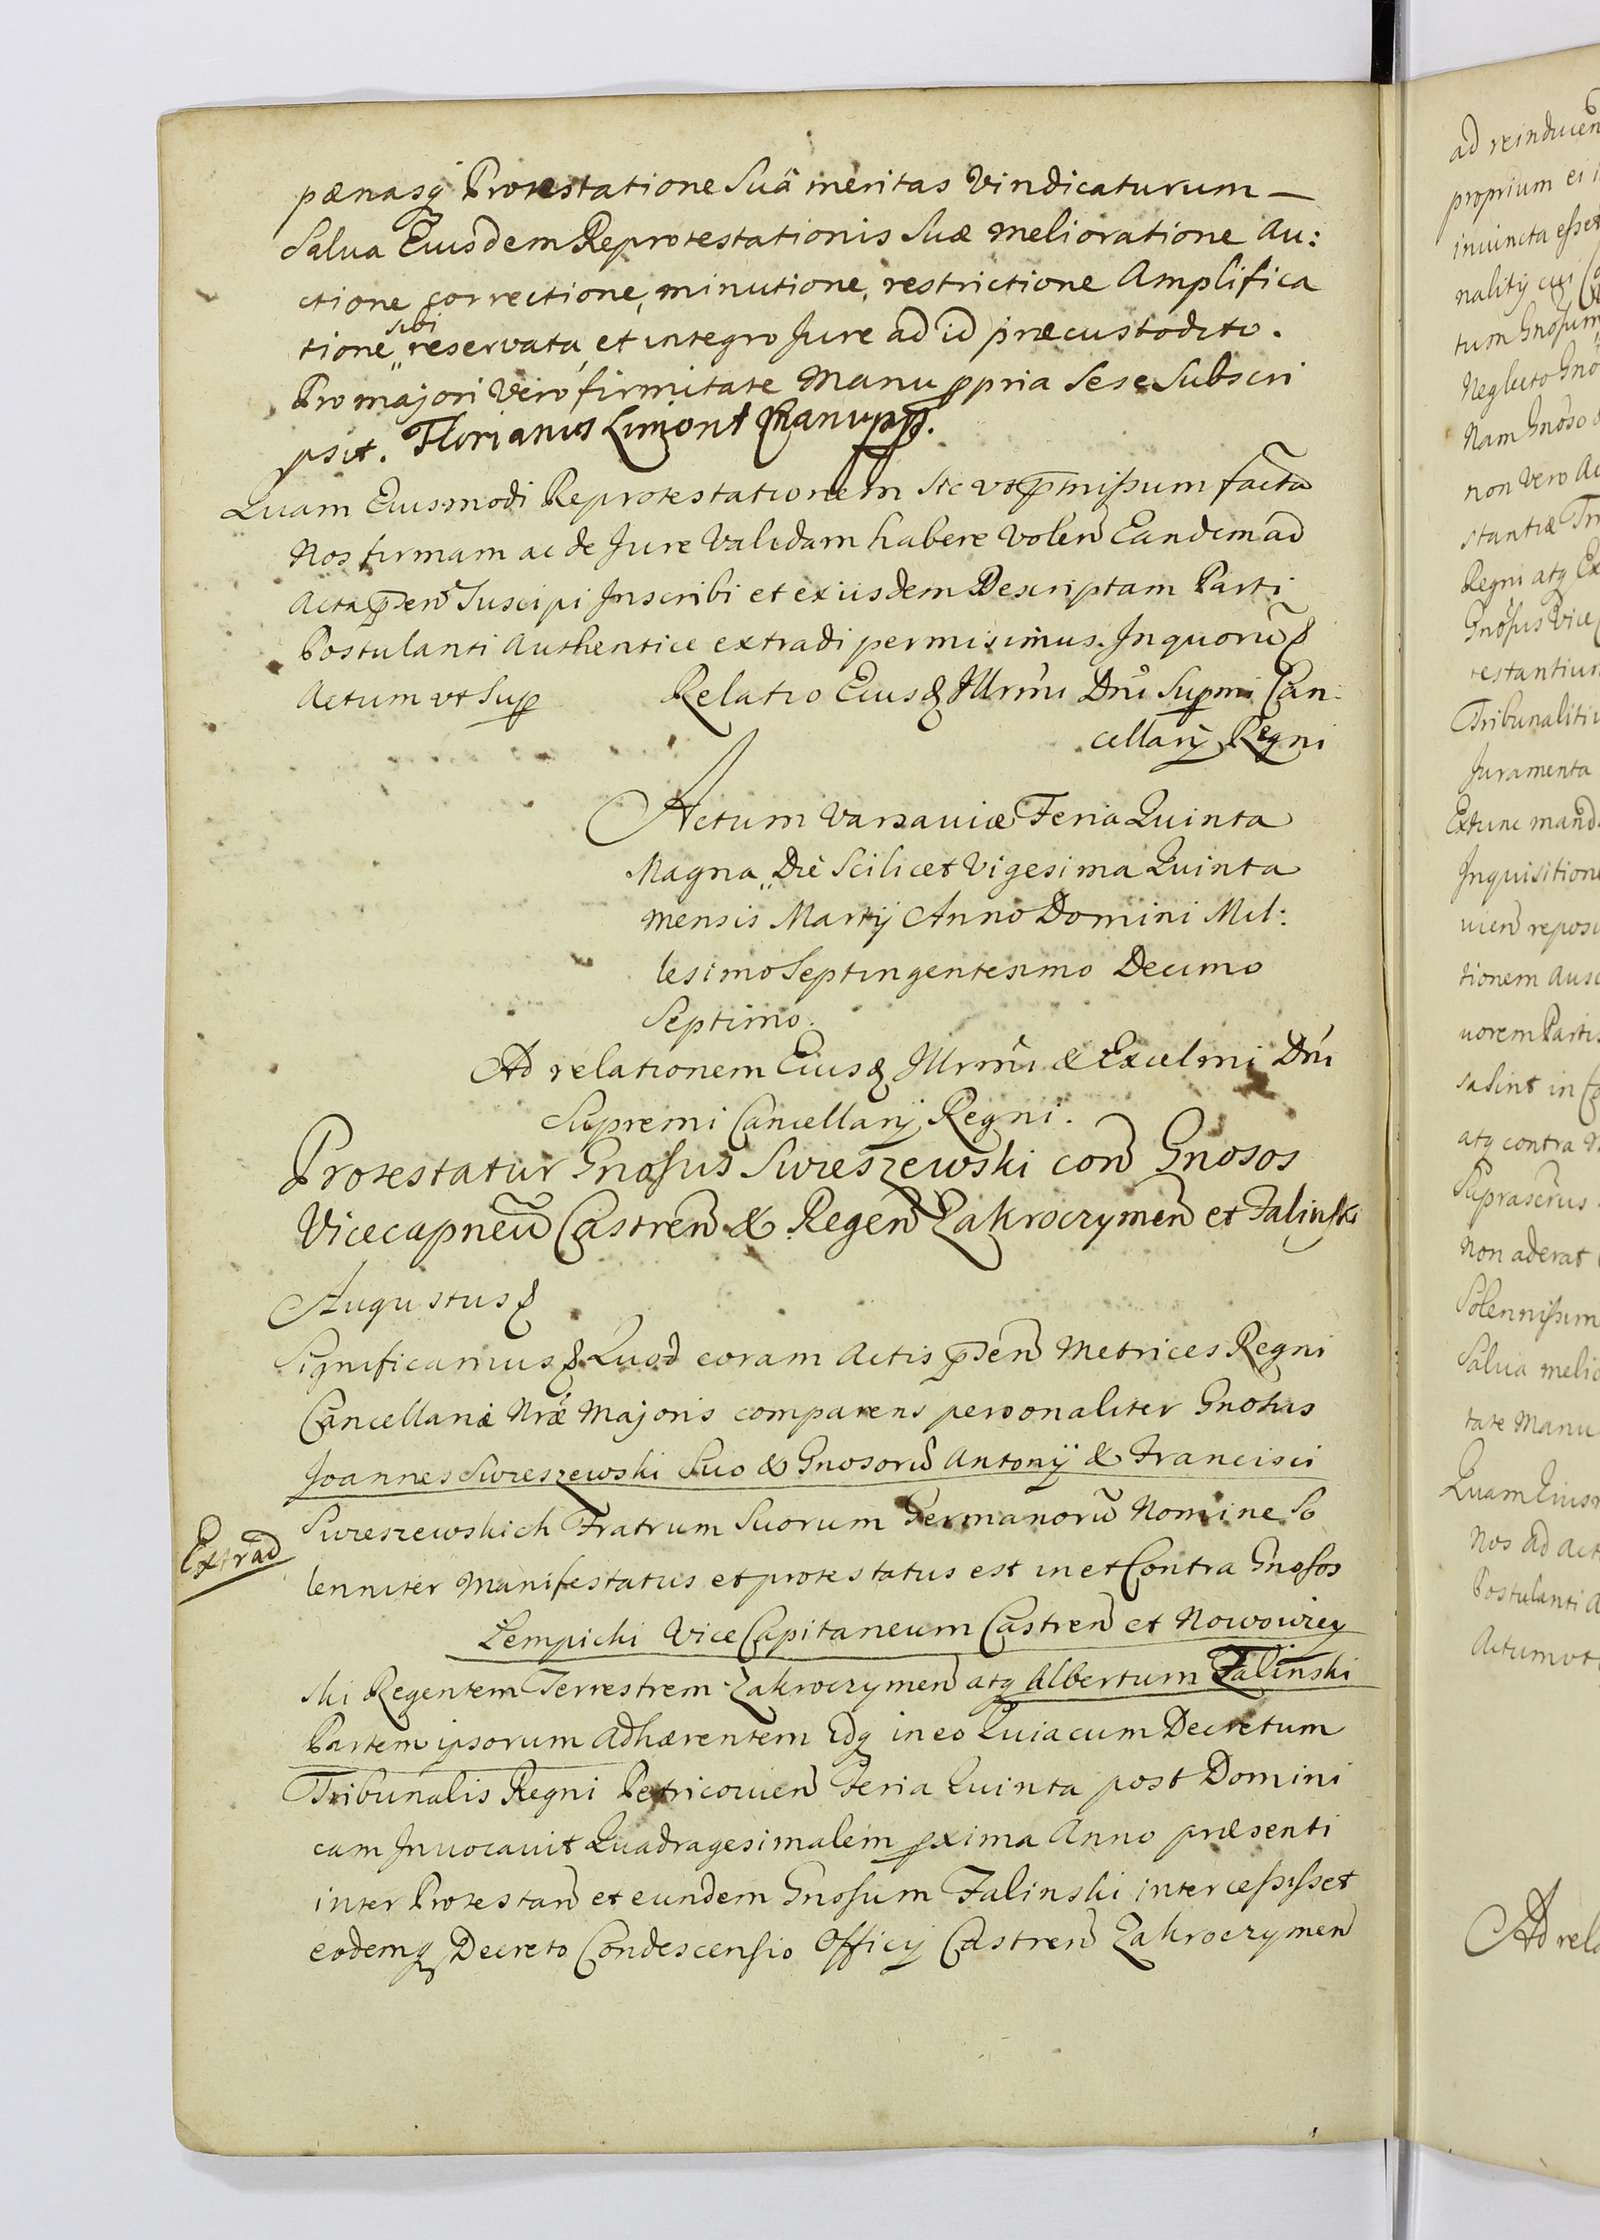 pænasq̃ Protestatione Suâ meritas Vindicaturum —
Salua Eiusdem Reprotestationis Suæ melioratione Au:
ctione correctione, minutione, restrictione Amplifica
tione sibi reservata, et integro Jure ad id præcustodito.
Pro majori Vero firmitate Manu ppria Sese Subscri
psit. Florianus Limont Manupp.
Quam Eiusmodi Reprotestationem Sic vt pmissum facta
Nos firmam ac de Jure Validam habere Volen Eandem ad
Acta pden Suscipi Inscribi et ex iisdem Descriptam Parti
Postulanti Authentice extradi permisimus. In quorũ &
Actum vt Sup
Relatio Eiusq Illrmi Dni Supmi Can:
cellarij Regni
Actum Varsaviæ Feria Quinta
Magna Die Scilicet Vigesima Quinta
mensis Martij Anno Domini Mil:
lesimo Septingentesimo Decimo
Septimo.
Ad relationem Eiusq Illrmi & Excelmi Dni
Supremi Cancellarij Regni.
Protestatur Gnosus Swieszewski con Gnosos
Vicecapneũ Castren & Regen Zakroczymen et Falinski
Augustus &
Significamus & Quod coram Actis pden Metrices Regni
Cancellariæ Nræ Majoris comparens personaliter Gnosus
Joannes Swieszewski Suo & Gnosorũ Antonij & Francisci
Swieszewskich Fratrum Suorum Germanorũ Nomine So
Extrad
lenniter Manifestatus et protestatus est in et Contra Gnosos
Lempicki Vice Capitaneum Castren et Nowowiey
ski Regentem Terrestrem Zakroczymen atq Albertum Falinski
Partem ipsorum Adhærentem Idq in eo Quia cum Decretum
Tribunalis Regni Petricovien Feria Quinta post Domini
cam Invocavit Quadragesimalem pxima Anno præsenti
inter Protestan et eundem Gnosum Falinski intercessisset
eodemq Decreto Condescensio Officij Castren Zakroczymen
ad reinducen
proprium ei
iniuncta esset
nality cui
tum Gnosum
Neglecto Gno
Nam Gnoso
non Vero
stantiæ
Regni atq Ex
Gnosus Vice
testantium
Tribunaliti
Juramenta
Extunc mand
Inquisition
vien repos
tionem Aus
uorem Partis
sasint in
atq contra
Suprascrus
Non aderat
Solennissim
Salua melio
tate Manu
Quam Eius
Nos ad act
Postulanti A
Actum vt
Ad rela